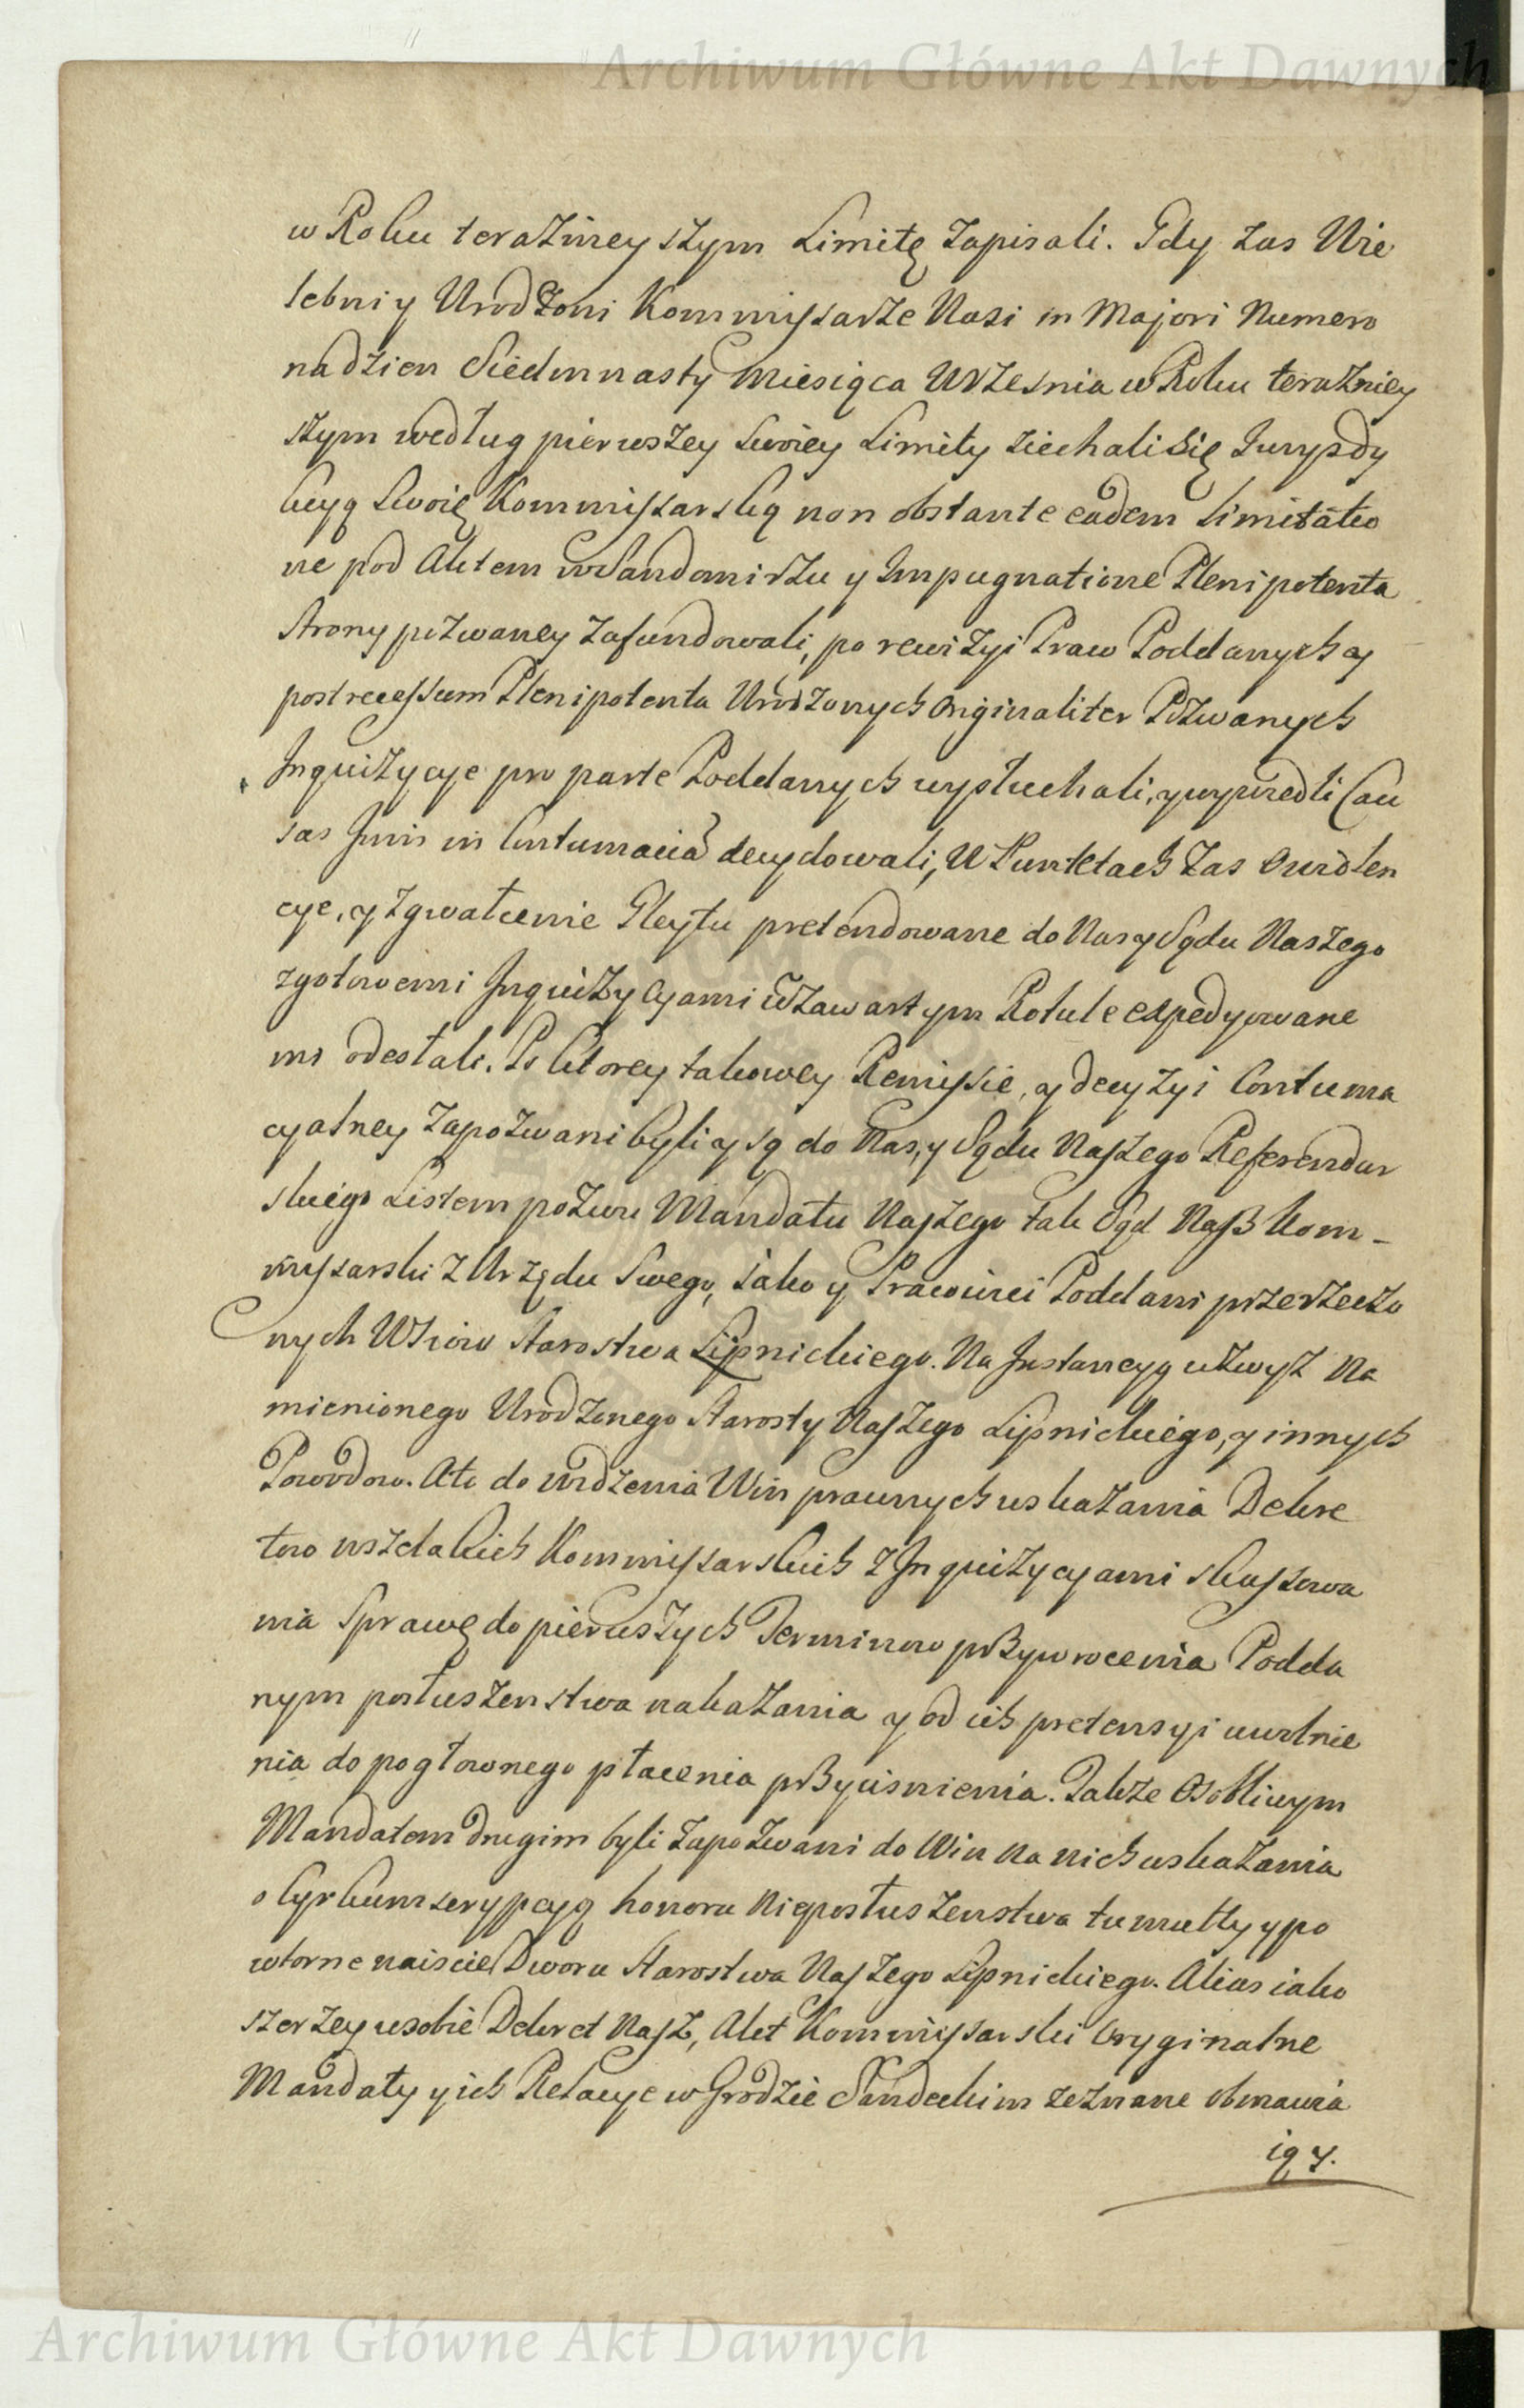 Archiwum Główne Akt Dawnych
w Roku teraznieyszym Limitę zapisali. Gdy zas Wie
lebni y Urodzoni Kommissarze Nasi in Majori Numero
na dzien Siedmnasty Miesiąca Wrzesnia w Roku terazniey
szym według pierwszey Swoiey Limity ziechali się Jurysdy
kcyą Swoię Kommissarską non obstante eadem Limitatio
ne pod Aktem w Sandomirzu y Impugnatione Plenipotenta
Strony pozwaney zafundowali, po rewizyi Praw Poddanych y
post recessum Plenipotenta Urodzonych Originaliter Pozwanych
Inquizycye pro parte Poddanych wysłuchali, y wywiedli Cau
sas Juris in Contumaciã decydowali, W Punktach zas
cye, y zgwałcenie Gleytu pretendowane do Nas y Sądu Naszego
z gotowemi Inquizycyami w zawartym Rotule expedyowane
mi odesłali. Po ktorey takowey Remissie, y decyzyi Contuma
cyalney zapozwani byli y są do Nas, y Sądu Naszego Referendar
skiego Listem pozwu Mandatu Naszego tak Sąd Nasz Kom-
missarski z Urzędu Swego, iako y Pracowici Poddani przerzeczo
nych Wsiow Starostwa Lipnickiego. Na Instancyą uzwyż Na
mienionego Urodzonego Starosty Naszego Lipnickiego, y innych
Powodow. A to do widzenia Win prawnych uskazania Dekre
tow wszelakich Kommissarskich z Inquizycyami skassowa
nia Sprawę do pierwszych Terminow przywrocenia Podda
nym posłuszenstwa nakazania y od ich pretensyi uwolnie
nia do pogłownego płacenia przycisnienia. Takze Osobliwym
Mandatem drugim byli zapozwani do Win na nich uskazania
o Cyrkumskrypcyą honoru Nieposłuszenstwa tumulty y po
wtorne naiscie Dworu Starostwa Naszego Lipnickiego. Alias iako
szerzey w sobie Dekret Nasz, Akt Kommissarski Oryginalne
Mandaty y ich Relacye w Grodzie Sandeckim zeznane obmawia
ią y.
Archiwum Główne Akt Dawnych